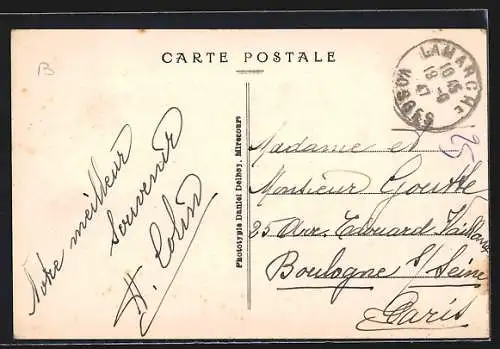 B
CARTE POSTALE
LAMARCHE
10 45
19 - 6
47
VOSGES
25
Notre meilleur
souvenir
H. Colin
Phototypie Daniel Delboy, Mirecourt
Madame et
Monsieur Goutte
25 Ave. Edouard Vaillant
Boulogne s/ Seine
Paris